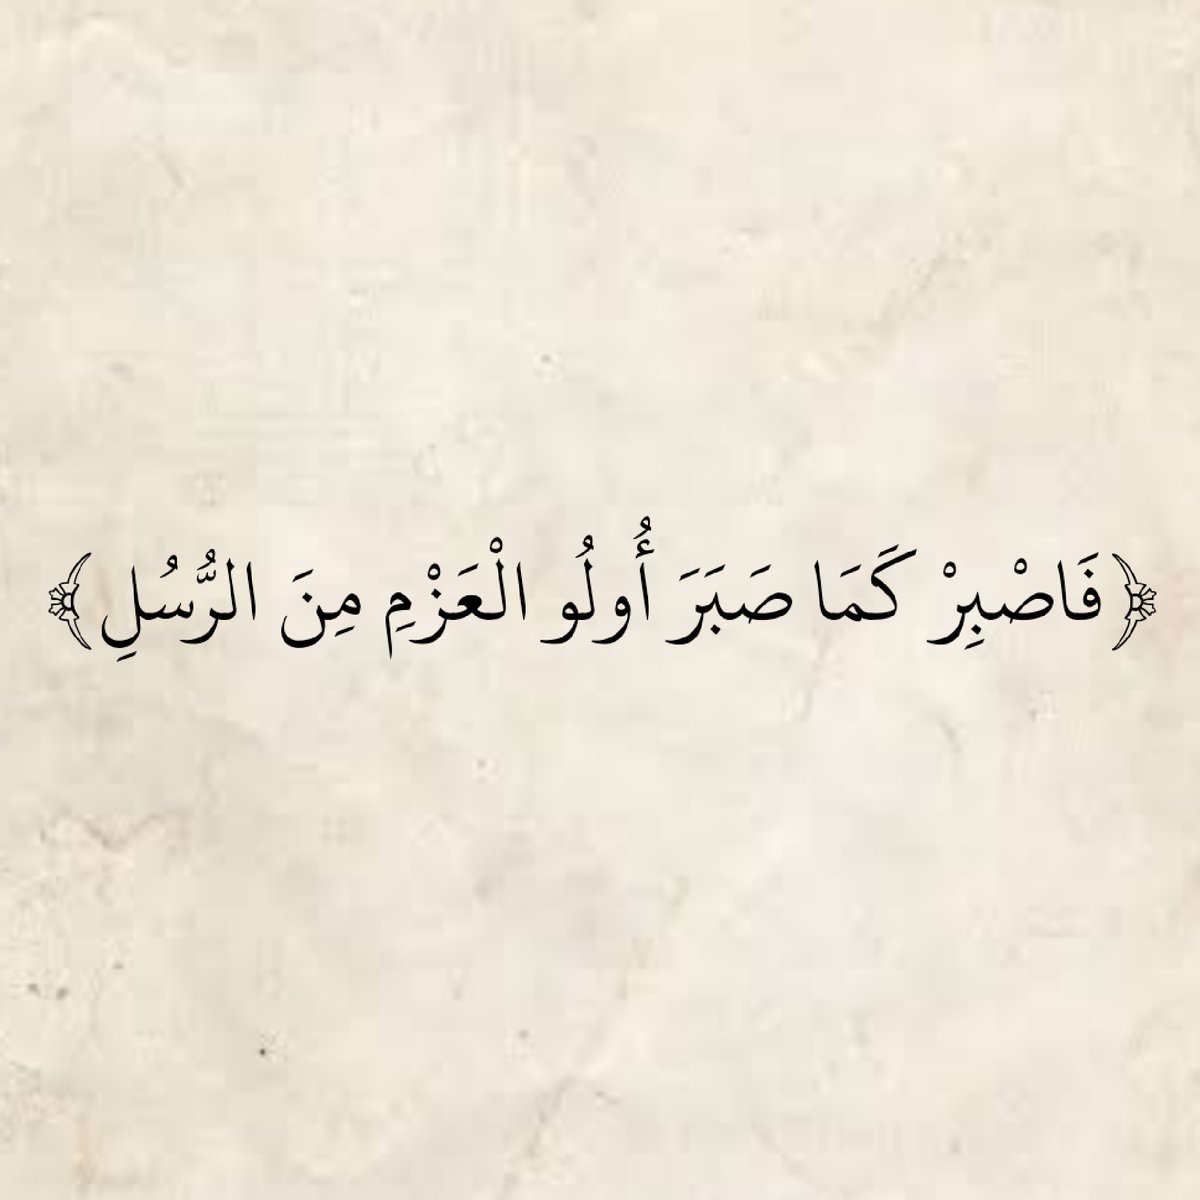 ﴿فَاصْبِرْ كَمَا صَبَرَ أُولُو الْعَزْمِ مِنَ الرُّسُلِ﴾